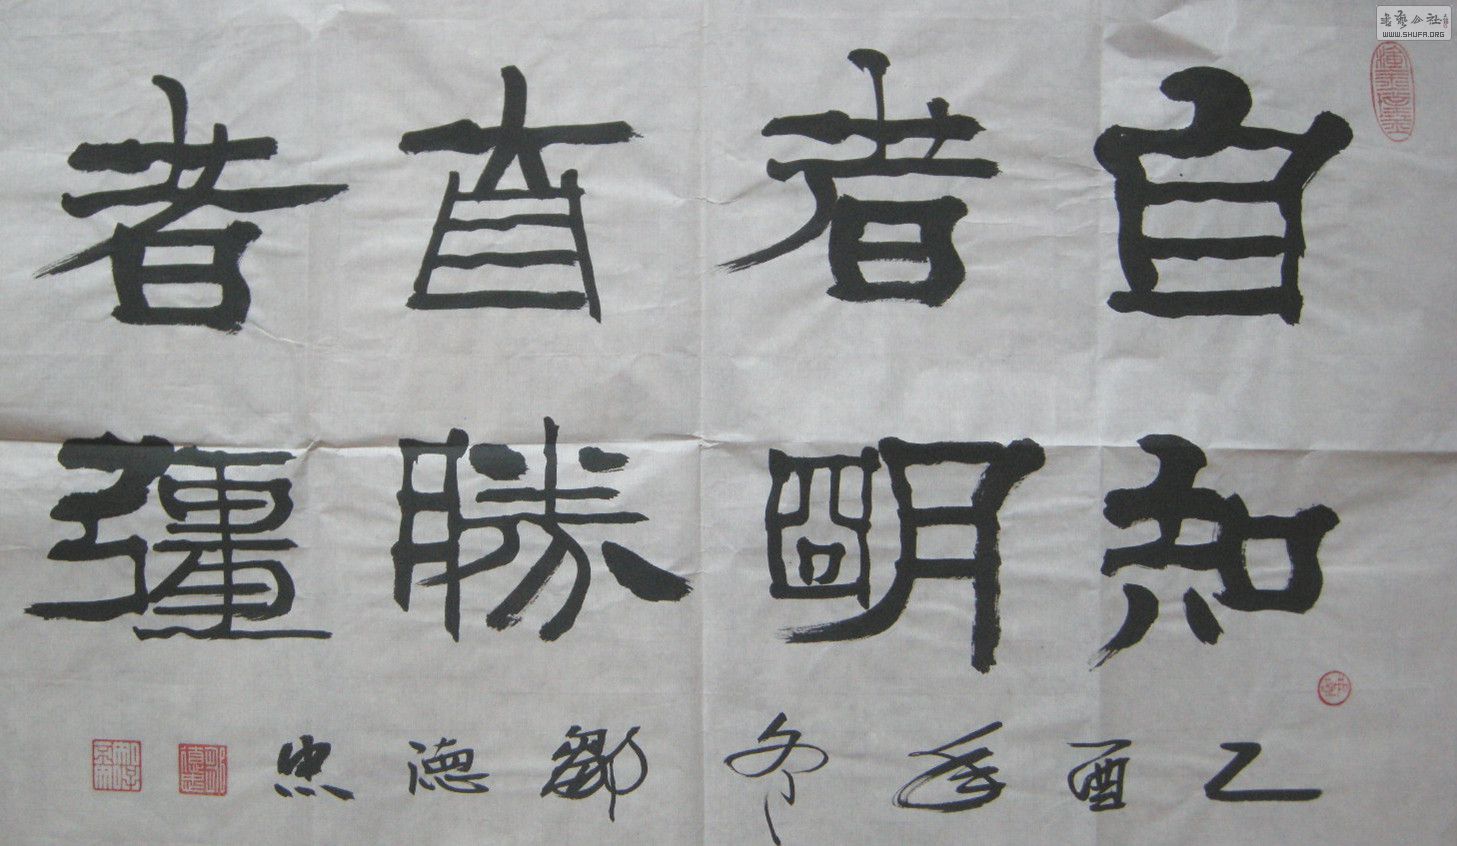 自知
者明
自勝
者彊
乙酉年冬鄒德忠
書藝公社
WWW.SHUFA.ORG